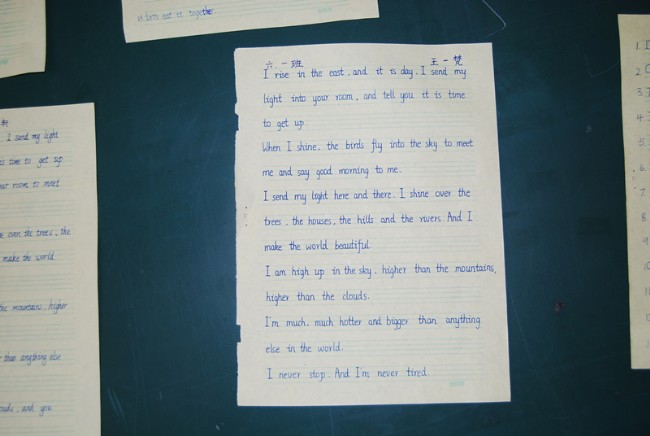 is bits eat it together
六.一班 王一梵
I rise in the east, and it is day. I send my
light into your room, and tell you it is time
to get up
When I shine, the birds fly into the sky to meet
me and say good morning to me.
I send my light here and there. I shine over the
trees, the houses, the hills and the rivers. And I
make the world beautiful.
I am high up in the sky, higher than the mountains,
higher than the clouds.
I'm much, much hotter and bigger than anything
else in the world.
I never stop. And I'm never tired.
I send my light
time to get up
room to meet
over the trees, the
make the world
the mountains, higher
than anything else
and you
1.
2
3
4
5
6
7
8
9
10
11